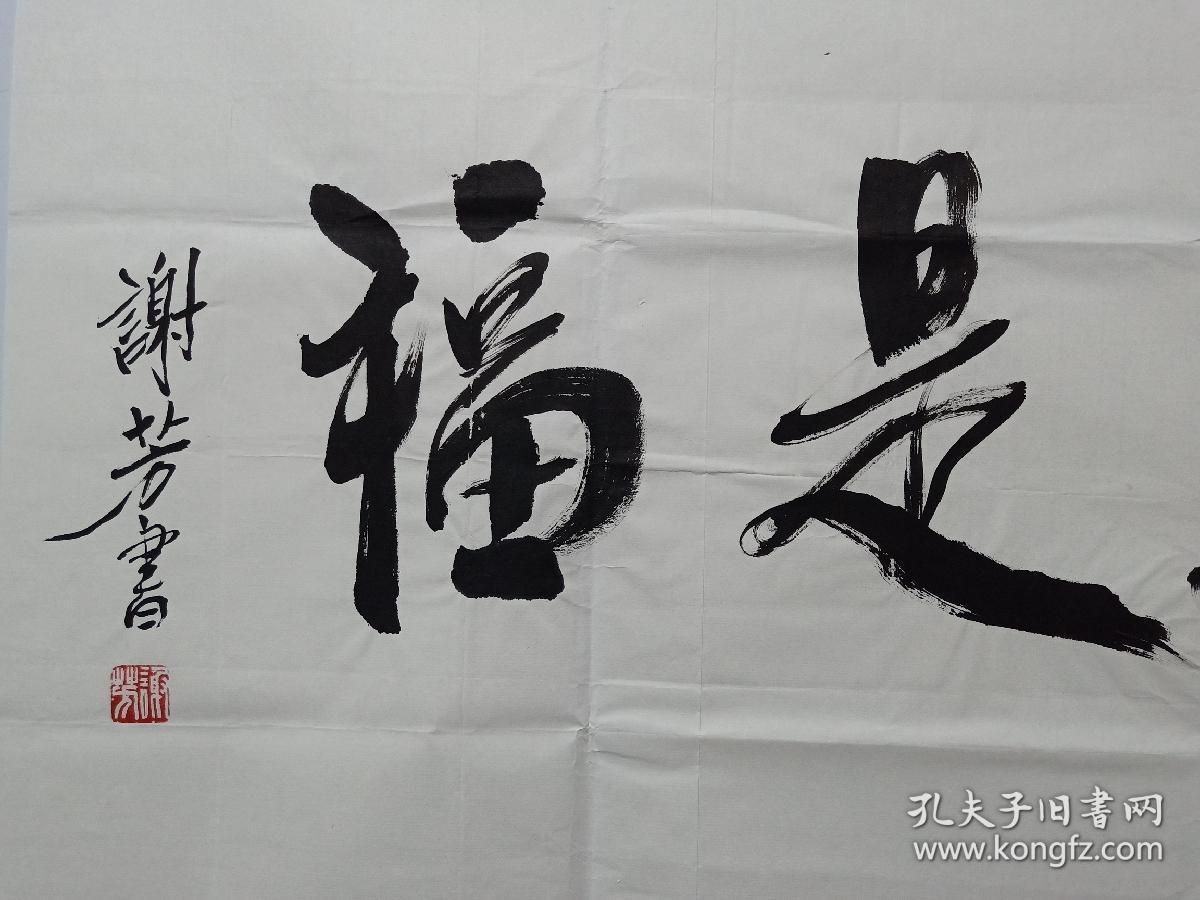 是福
謝芳書
謝芳
孔夫子旧書网
www.kongfz.com